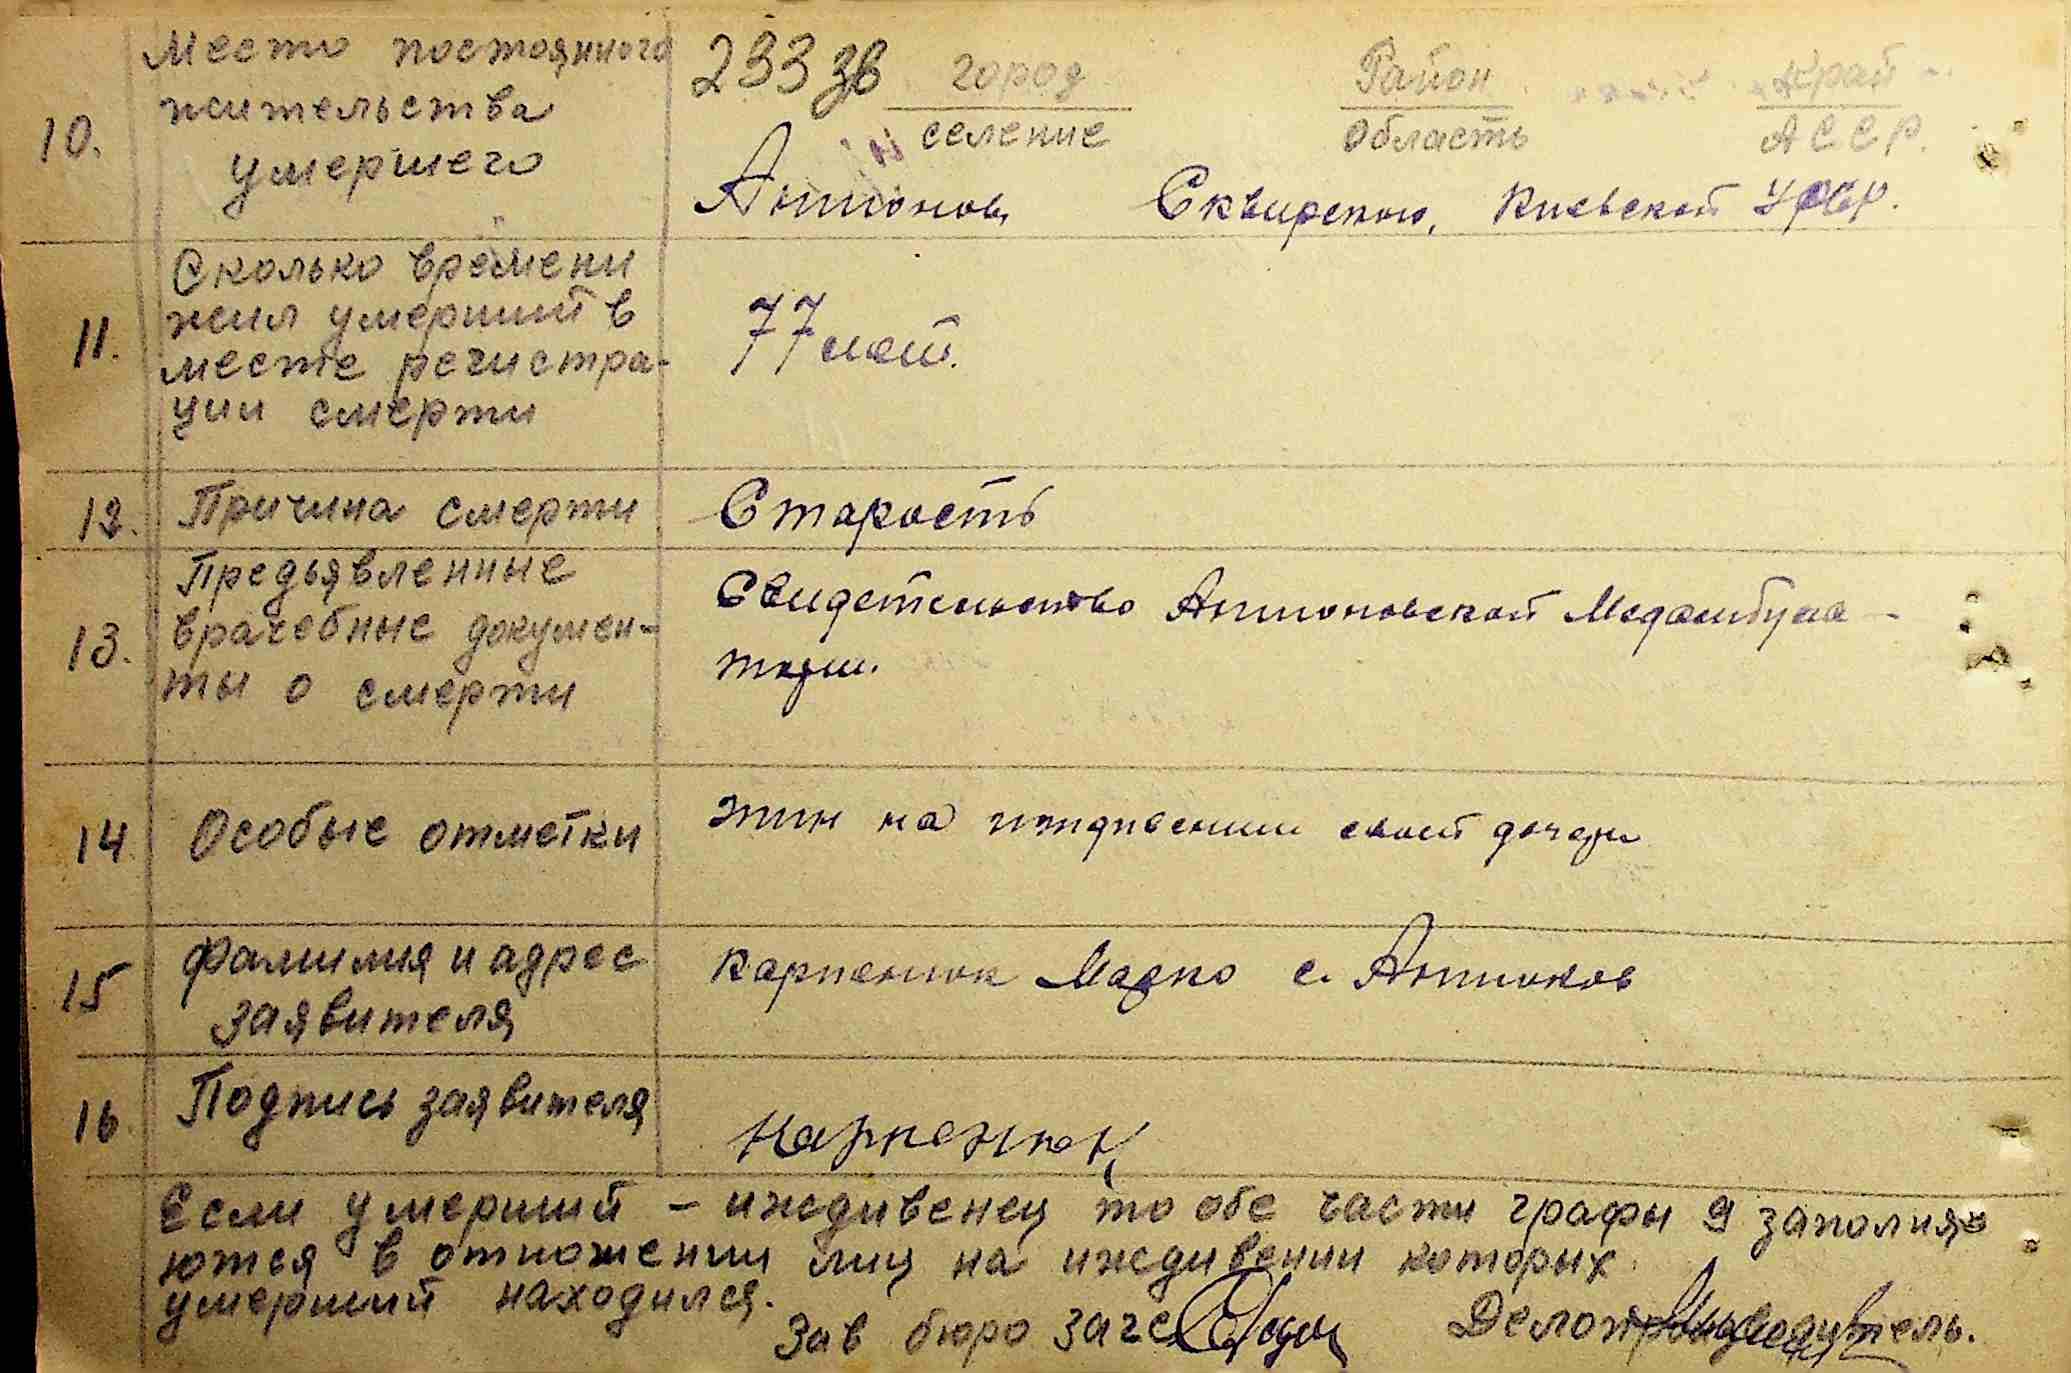 10. Место постоянного
жительства
умершего
233 зв
город
селение
Район
Область
Край
АССР.
Антонов, Сквирского, Киевской УССР.
11. Сколько времени
жил умерший в
месте регистра-
ции смерти
77 лет.
12. Причина смерти
Старость
13. Предьявленные
врачебные докумен-
ты о смерти
Свидетельство Антоновской Медамбула-
тори.
14 Особые отметки
жин на иждивении своей дочери
15 Фамилия и адрес
заявителя
Карпенюк Марко с. Антонов
16 Подпись заявителя
Карпенюк
Если умерший - иждивенец то обе части графы 9 заполня-
ются в отношении лиц на иждивении которых
умерший находился.
Зав бюро загс Делопроизводитель.